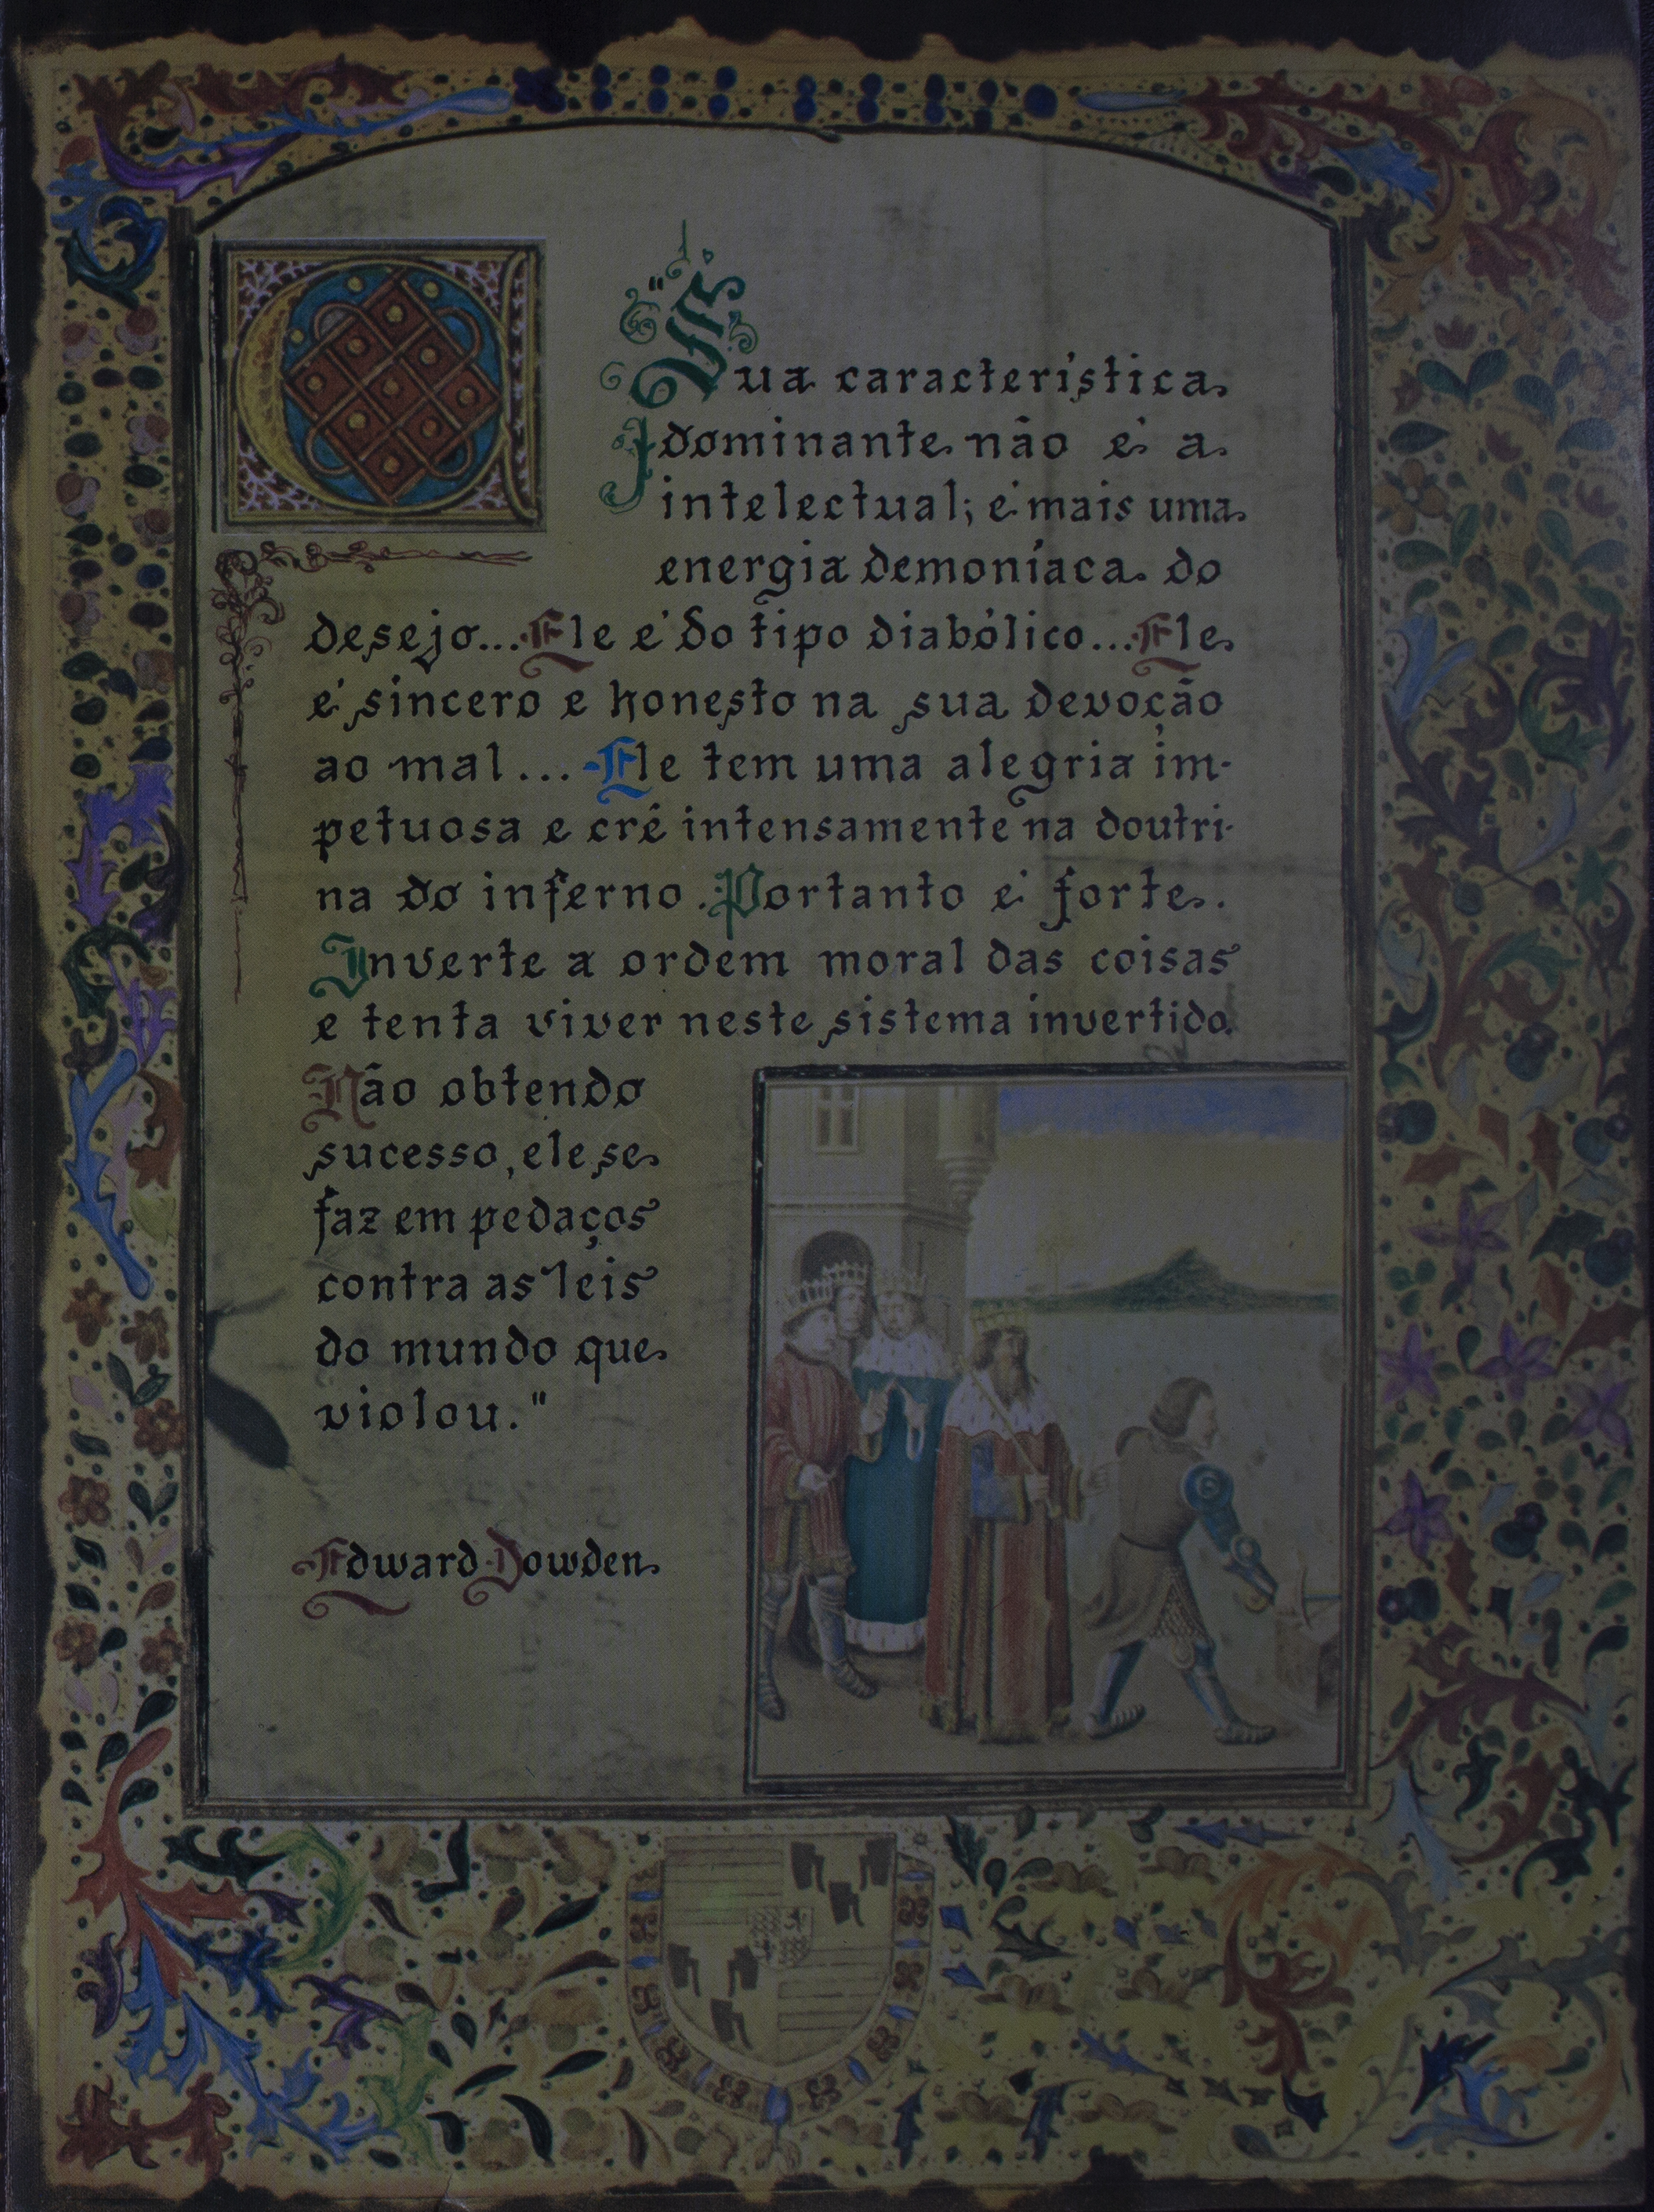 "Sua característica
dominante não é a
intelectual; é mais uma
energia demoníaca do
desejo... Ele é do tipo diabólico... Ele
é sincero e honesto na sua devoção
ao mal... Ele tem uma alegria im-
petuosa e crê intensamente na doutri-
na do inferno. Portanto é forte.
Inverte a ordem moral das coisas
e tenta viver neste sistema invertido.
Não obtendo
sucesso, ele se
faz em pedaços
contra as leis
do mundo que
violou."
Edward Dowden